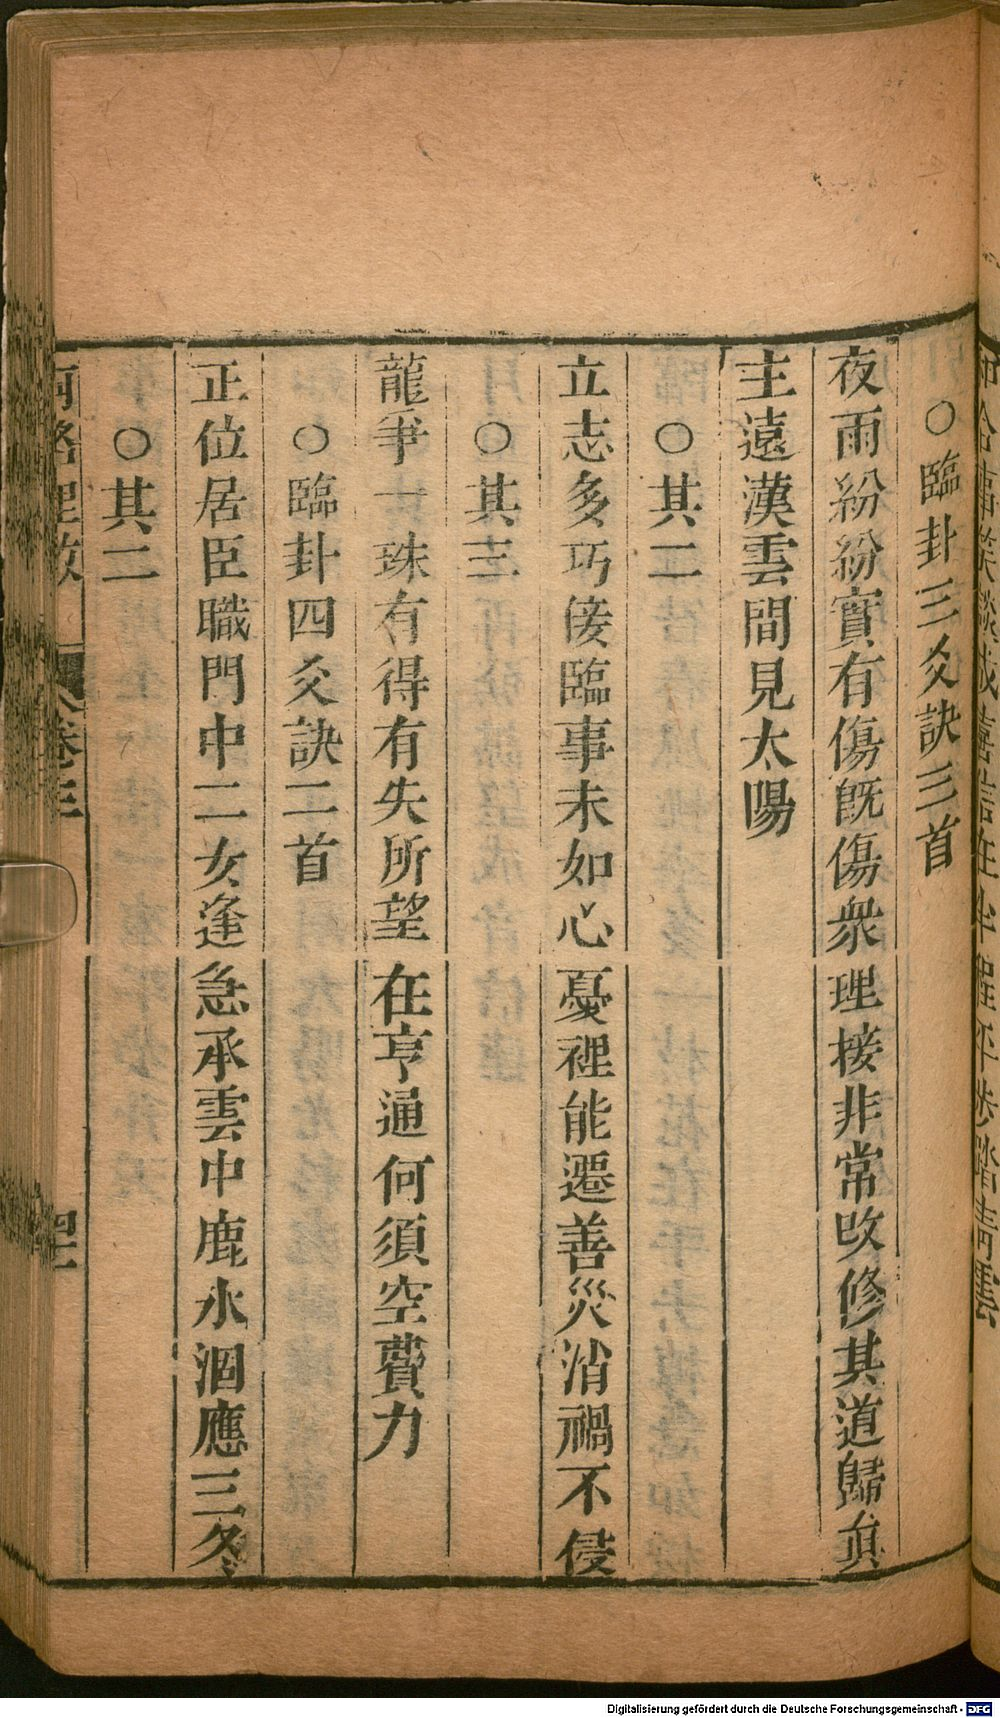 ○臨卦三爻訣三首
夜雨紛紛實有傷既傷衆理接非常改修其道歸真
主遠漢雲間見太陽
○其二
立志多巧倿臨事未如心憂裡能遷善災消禍不侵
○其三
龍爭一珠有得有失所望在亨通何須空費力
○臨卦四爻訣二首
正位居臣職門中二女逢急承雲中鹿氷涸應三冬
○其二
河洛理數
卷三
Digitalisierung gefördert durch die Deutsche Forschungsgemeinschaft - DFG